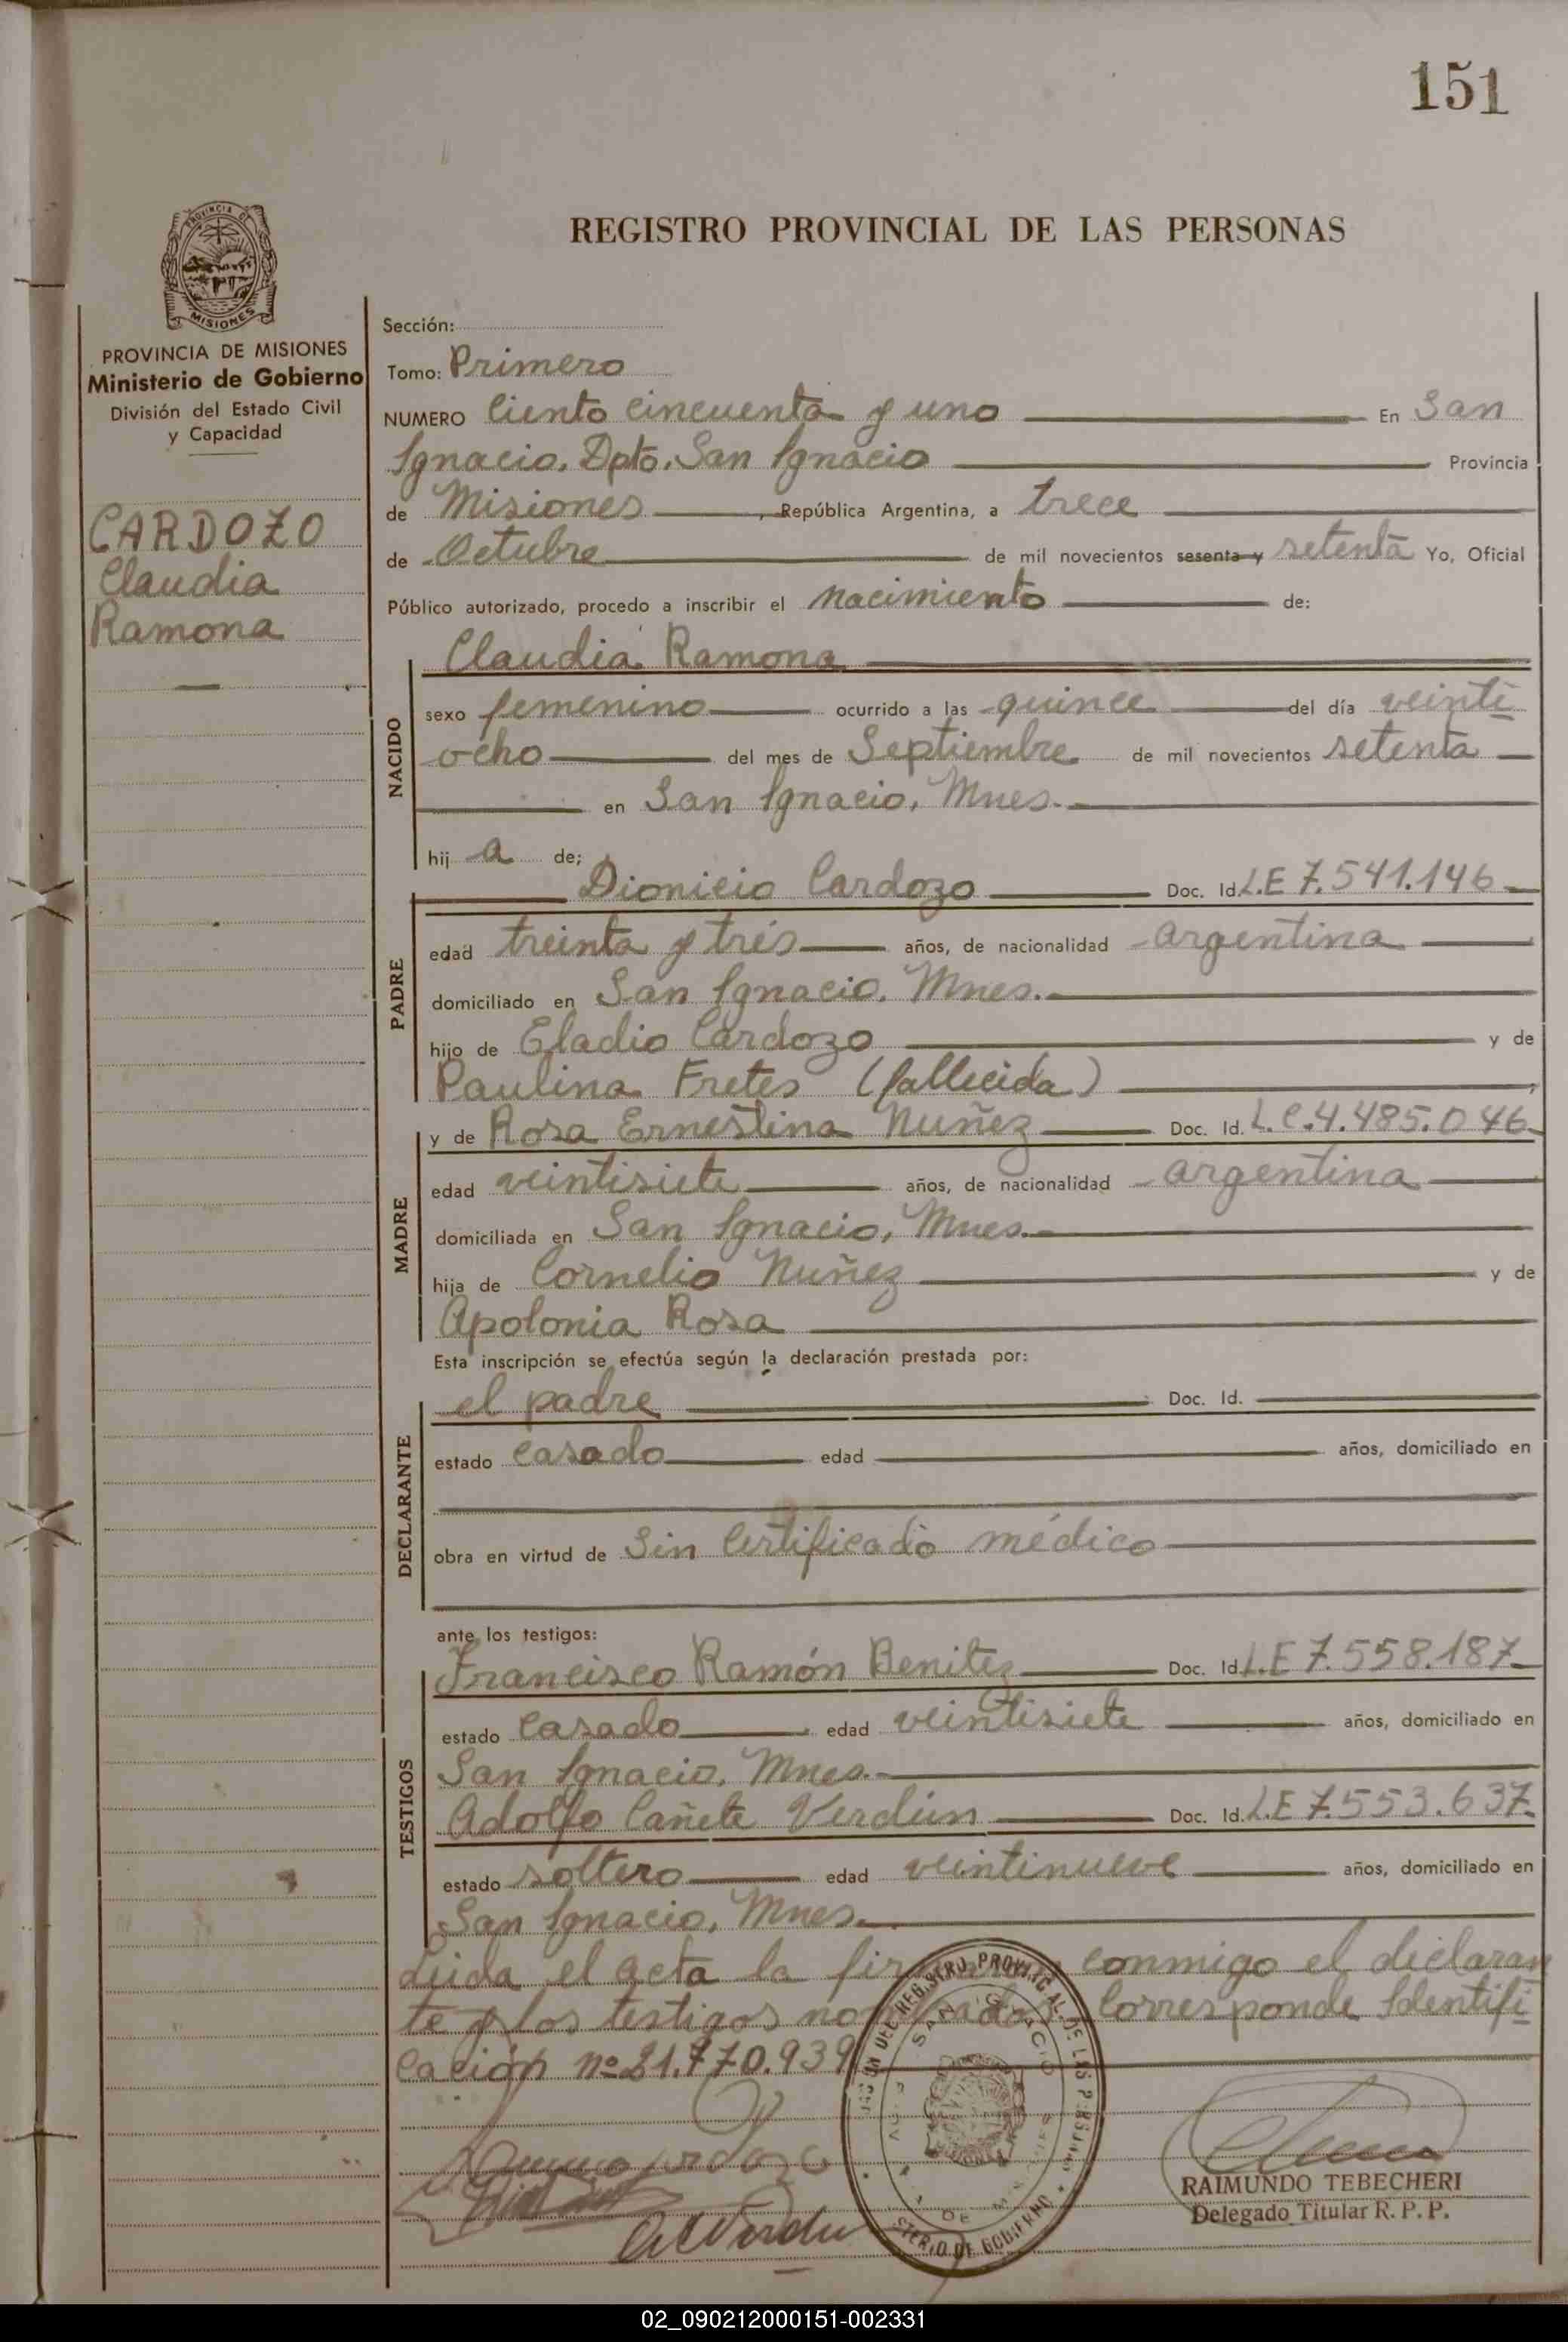 151
REGISTRO PROVINCIAL DE LAS PERSONAS
PROVINCIA DE
MISIONES
PROVINCIA DE MISIONES
Ministerio de Gobierno
División del Estado Civil
y Capacidad
CARDOZO
Claudia
Ramona
Sección:
Tomo: Primero
NUMERO Ciento cincuenta y uno En San
Ignacio, Dpto. San Ignacio Provincia
de Misiones, República Argentina, a trece
de Octubre de mil novecientos sesenta y setenta Yo, Oficial
Público autorizado, procedo a inscribir el nacimiento de:
NACIDO
Claudia Ramona
sexo femenino ocurrido a las quince del día veinti
ocho del mes de Septiembre de mil novecientos setenta
en San Ignacio, Mnes.
hij a de;
PADRE
Dionicio Cardozo Doc. Id. L.E 7.541.146
edad treinta y trés años, de nacionalidad argentina
domiciliado en San Ignacio, Mnes.
hijo de Eladio Cardozo y de
Paulina Fretes (fallecida)
MADRE
y de Rosa Ernestina Nuñez Doc. Id. L.C.4.485.046
edad veintisiete años, de nacionalidad argentina
domiciliada en San Ignacio, Mnes.
hija de Cornelio Nuñez y de
Apolonia Rosa
Esta inscripción se efectúa según la declaración prestada por:
DECLARANTE
el padre Doc. Id.
estado casado edad años, domiciliado en
obra en virtud de Sin Certificado médico
ante los testigos:
TESTIGOS
Francisco Ramón Benitez Doc. Id. L.E 7.558.187
estado casado edad veintisiete años, domiciliado en
San Ignacio, Mnes.
Adolfo Cañete Verdún Doc. Id. L.E 7.553.637
estado soltero edad veintinueve años, domiciliado en
San Ignacio, Mnes.
Leida el acta la conmigo el declaran
te y los testigos Corresponde Identifi
cación nº 21.770.939
REGISTRO PROVINCIAL DE LAS PERSONAS
SAN IGNACIO
RAIMUNDO TEBECHERI
Delegado Titular R. P. P.
02_090212000151-002331